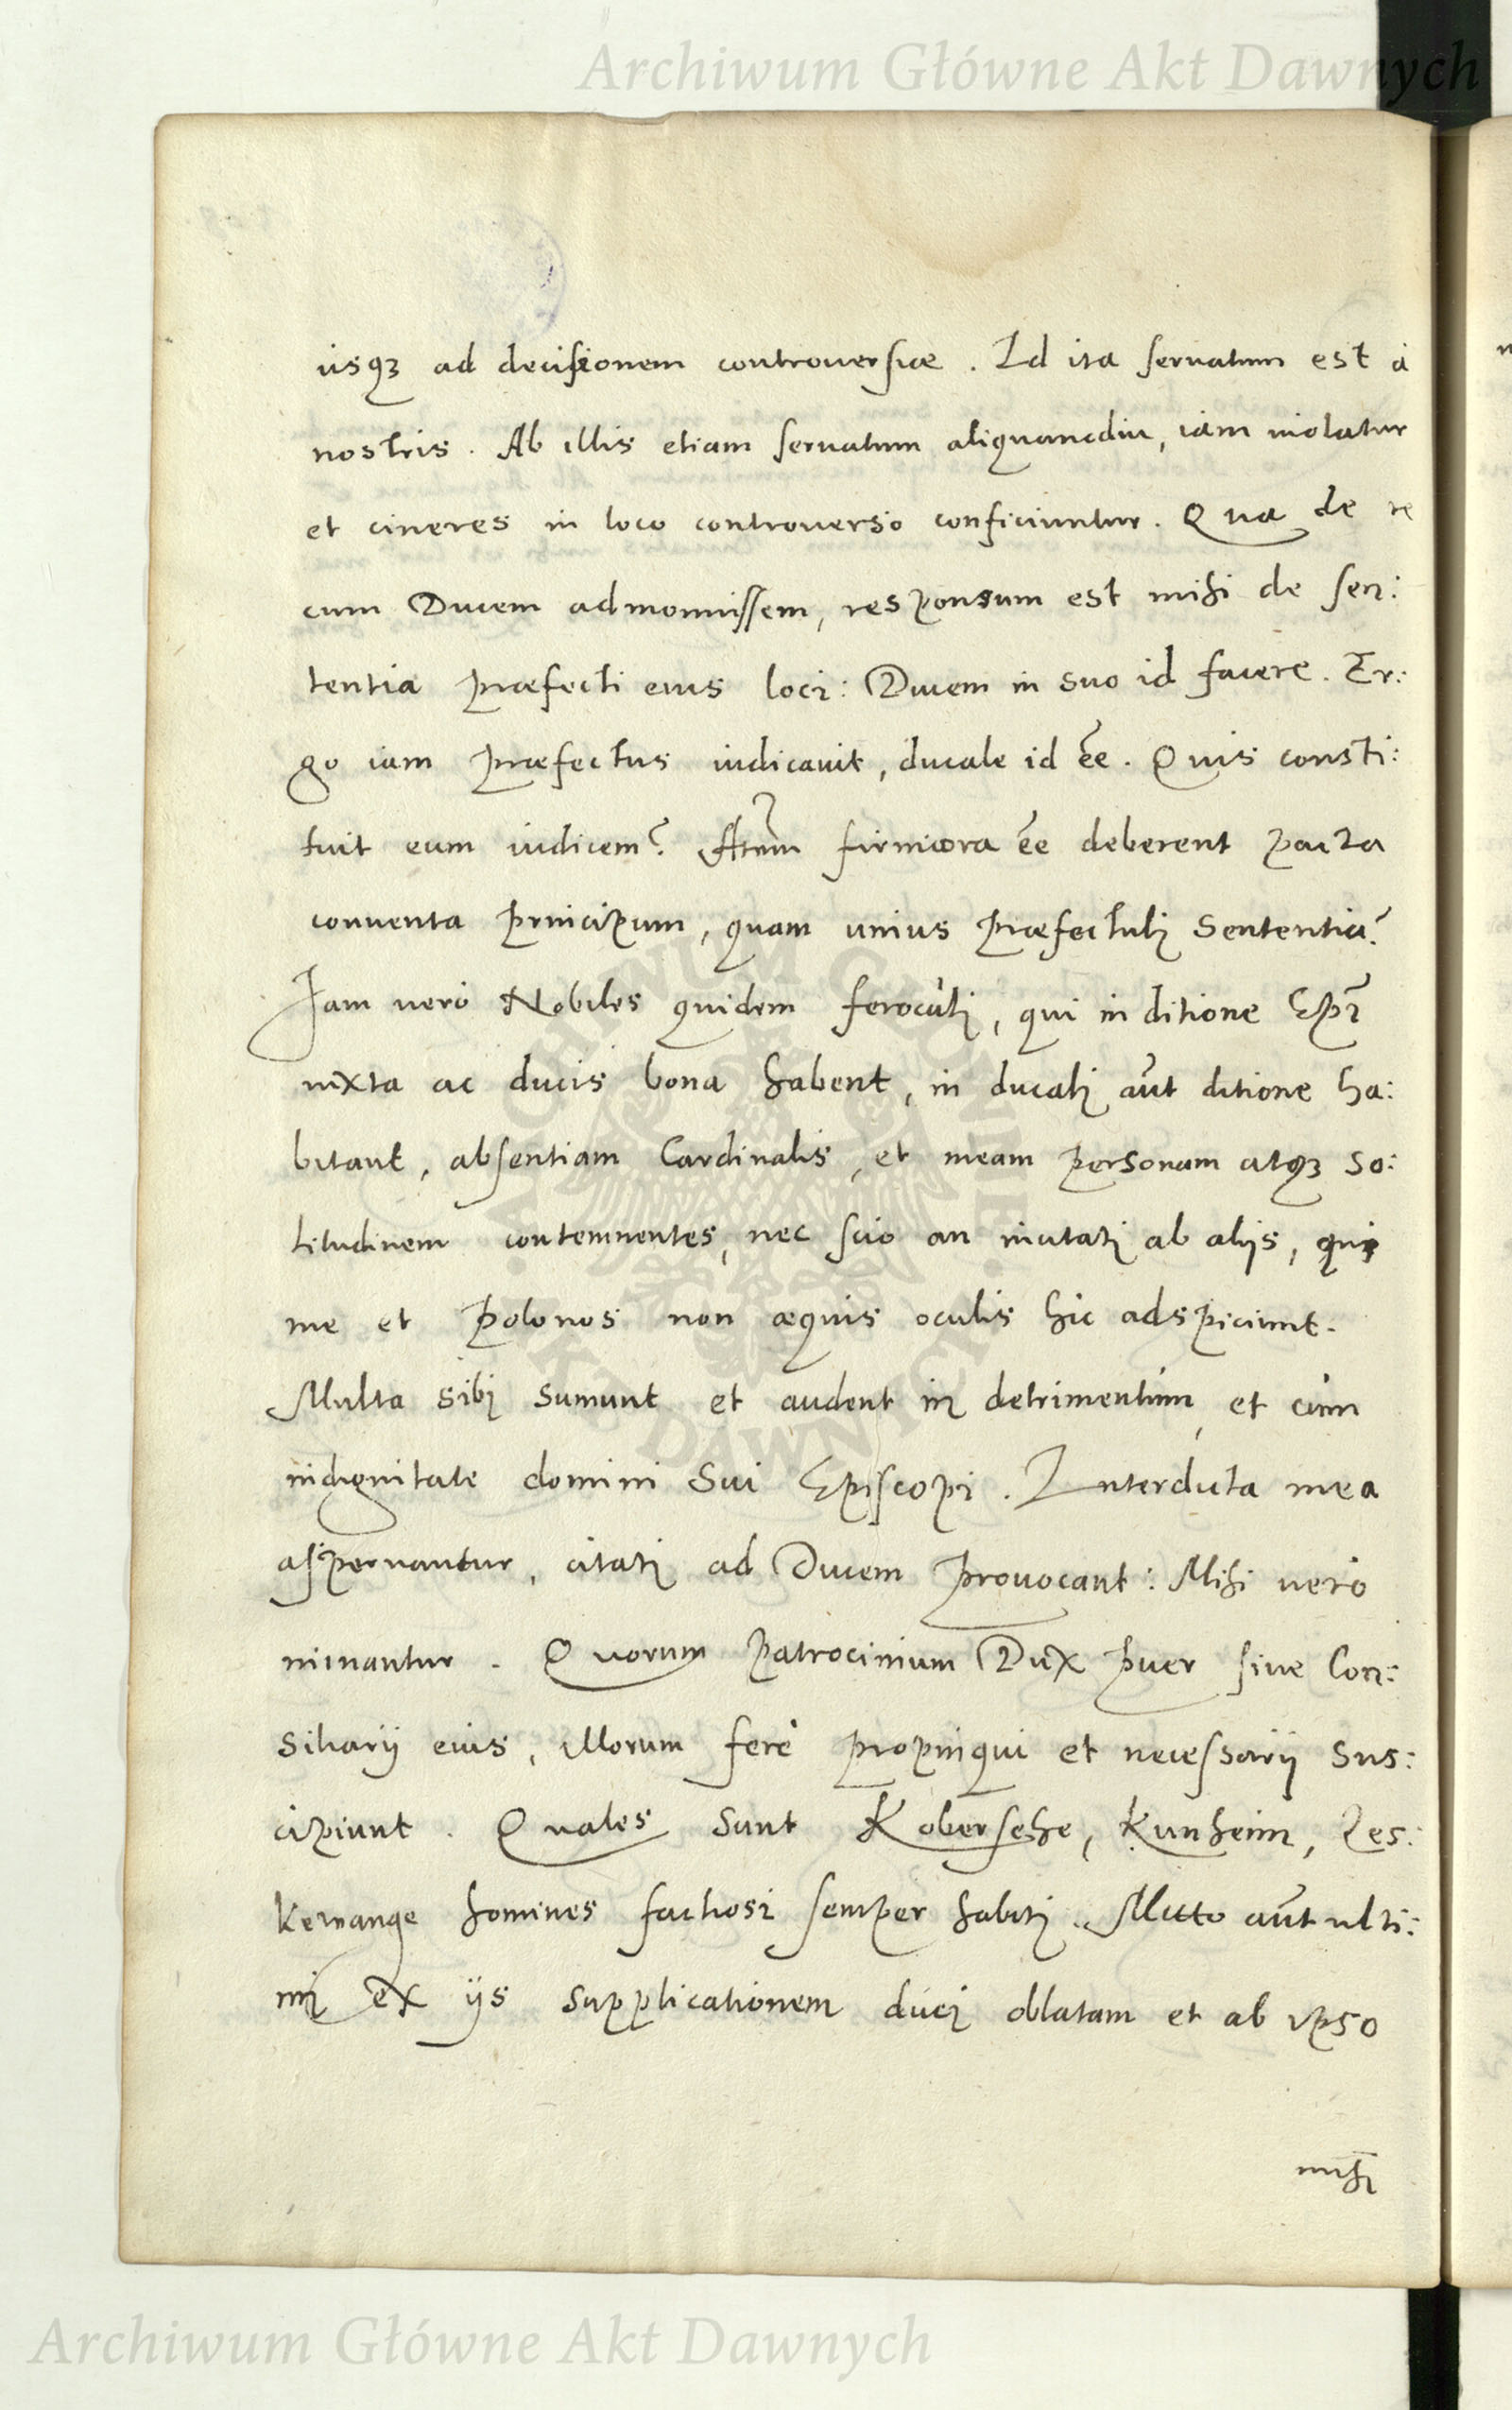 Archiwum Główne Akt Dawnych
usqꝫ ad decisionem controuersiæ. Id ita seruatum est à
nostris. Ab illis etiam seruatum aliquamdiu, iam uiolatur
et cineres in loco controuerso conficiuntur. Qua de re
cum Ducem admonuissem, responsum est mihi de sen:
tentia præfecti eius loci: Ducem in suo id facere. Er:
go iam præfectus iudicauit, ducale id ẽe. Quis consti:
tuit eum iudicem? firmiora ẽe deberent pacta
conuenta principum, quam unius præfectuli sententia?
Jam uerò Nobiles quidem feroculi, qui in ditione Epĩ
iuxta ac ducis bona habent, in ducali aũt ditione ha:
bitant, absentiam Cardinalis, et meam personam atqꝫ so:
litudinem contemnentes, nec scio an incitati ab alijs, qui
me et Polonos non æquis oculis hic adspiciunt.
Multa sibi sumunt et audent in detrimentum, et cum
indignitate domini sui Episcopi. Interdicta mea
aspernantur, citati ad Ducem prouocant: Mihi uerò
minantur. Quorum patrocinium Dux puer siue Con:
siliarij eius, illorum ferè propinqui et necessarij sus:
cipiunt. Quales sunt Kobersehe, Kunheim, Les:
kewange homines factiosi semper habiti. Mitto aũt ulti:
mi ex ijs supplicationem duci oblatam et ab ipso
mihi
ARCHIWUM GŁÓWNE AKT DAWNYCH
Archiwum Główne Akt Dawnych